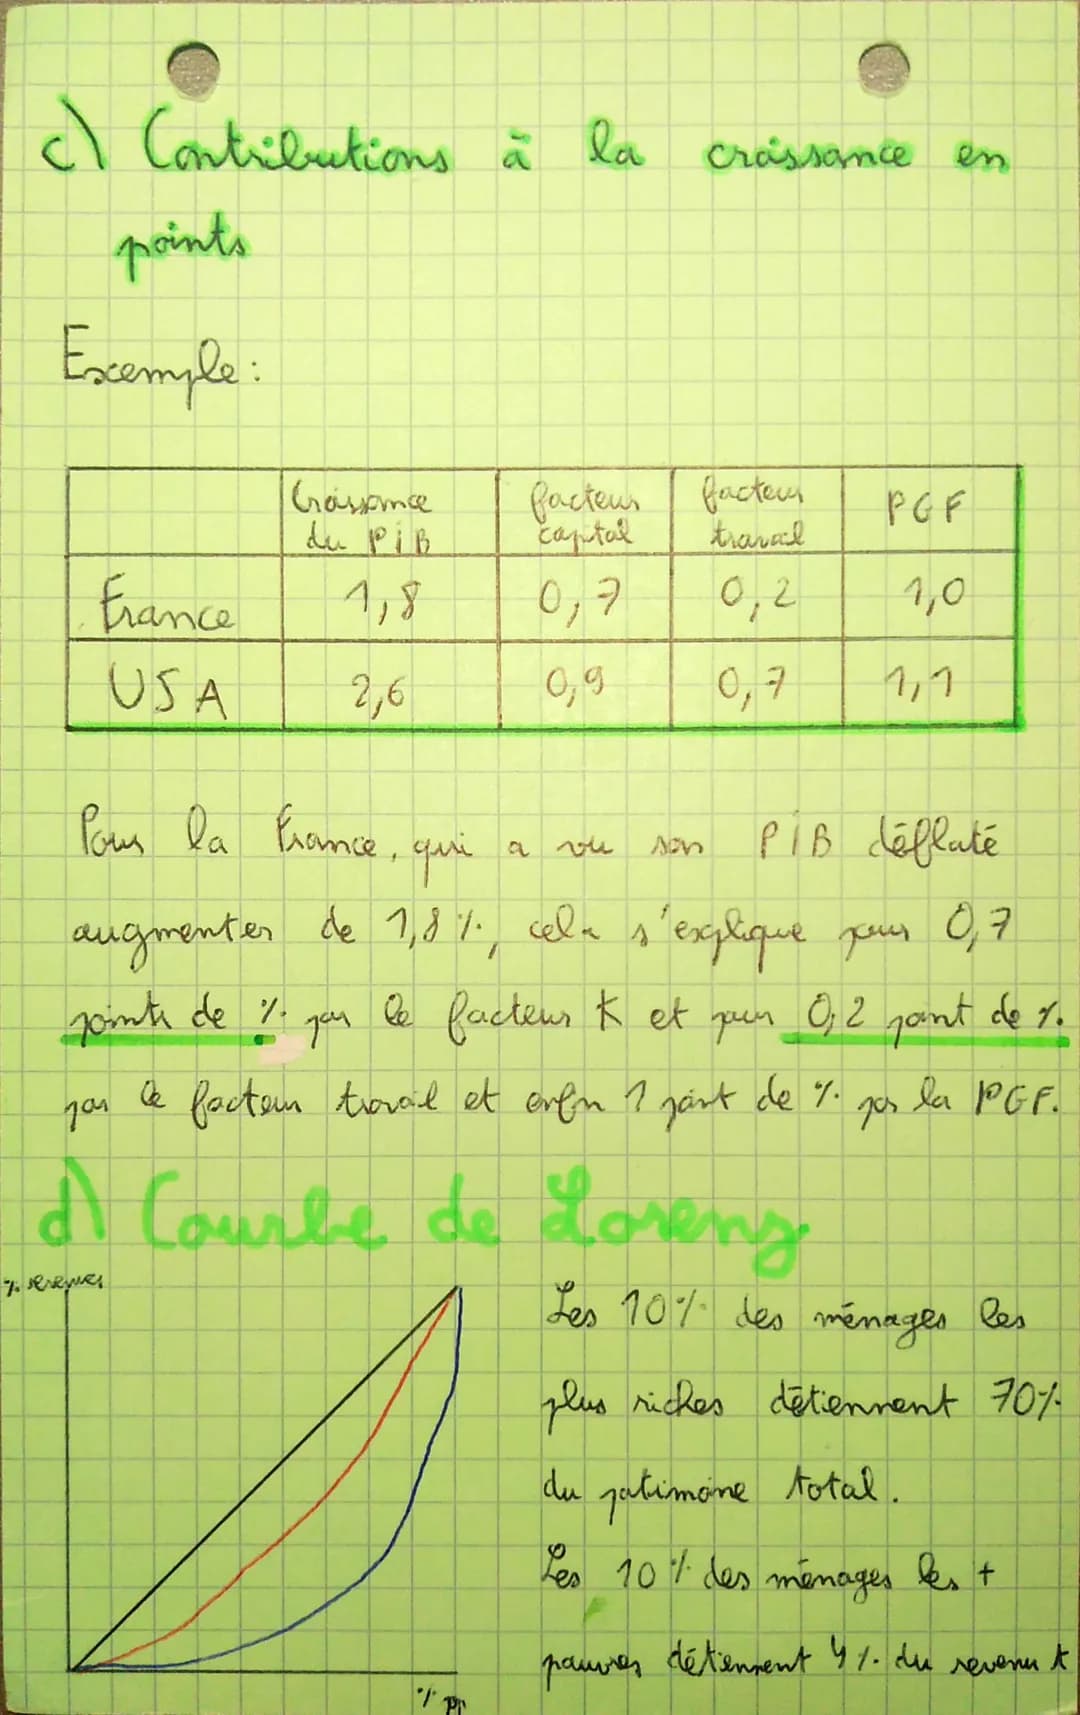 c) Contributions à la croissance en
points
Exemple :
Croissance du PIB facteur capital facteur travail PGF
France 1,8 0,7 0,2 1,0
USA 2,6 0,9 0,7 1,1
Pour la France, qui a vu son PIB déflaté
augmenter de 1,8 %, cela s'explique pour 0,7
points de % par le facteur K et pour 0,2 point de %
par le facteur travail et enfin 1 point de % par la PGF.
d) Courbe de Lorenz
% revenus
Les 10% des ménages les
plus riches détiennent 70%
du patimoine total.
Les 10% des ménages les +
pauvres détiennent 4% du revenu t
%